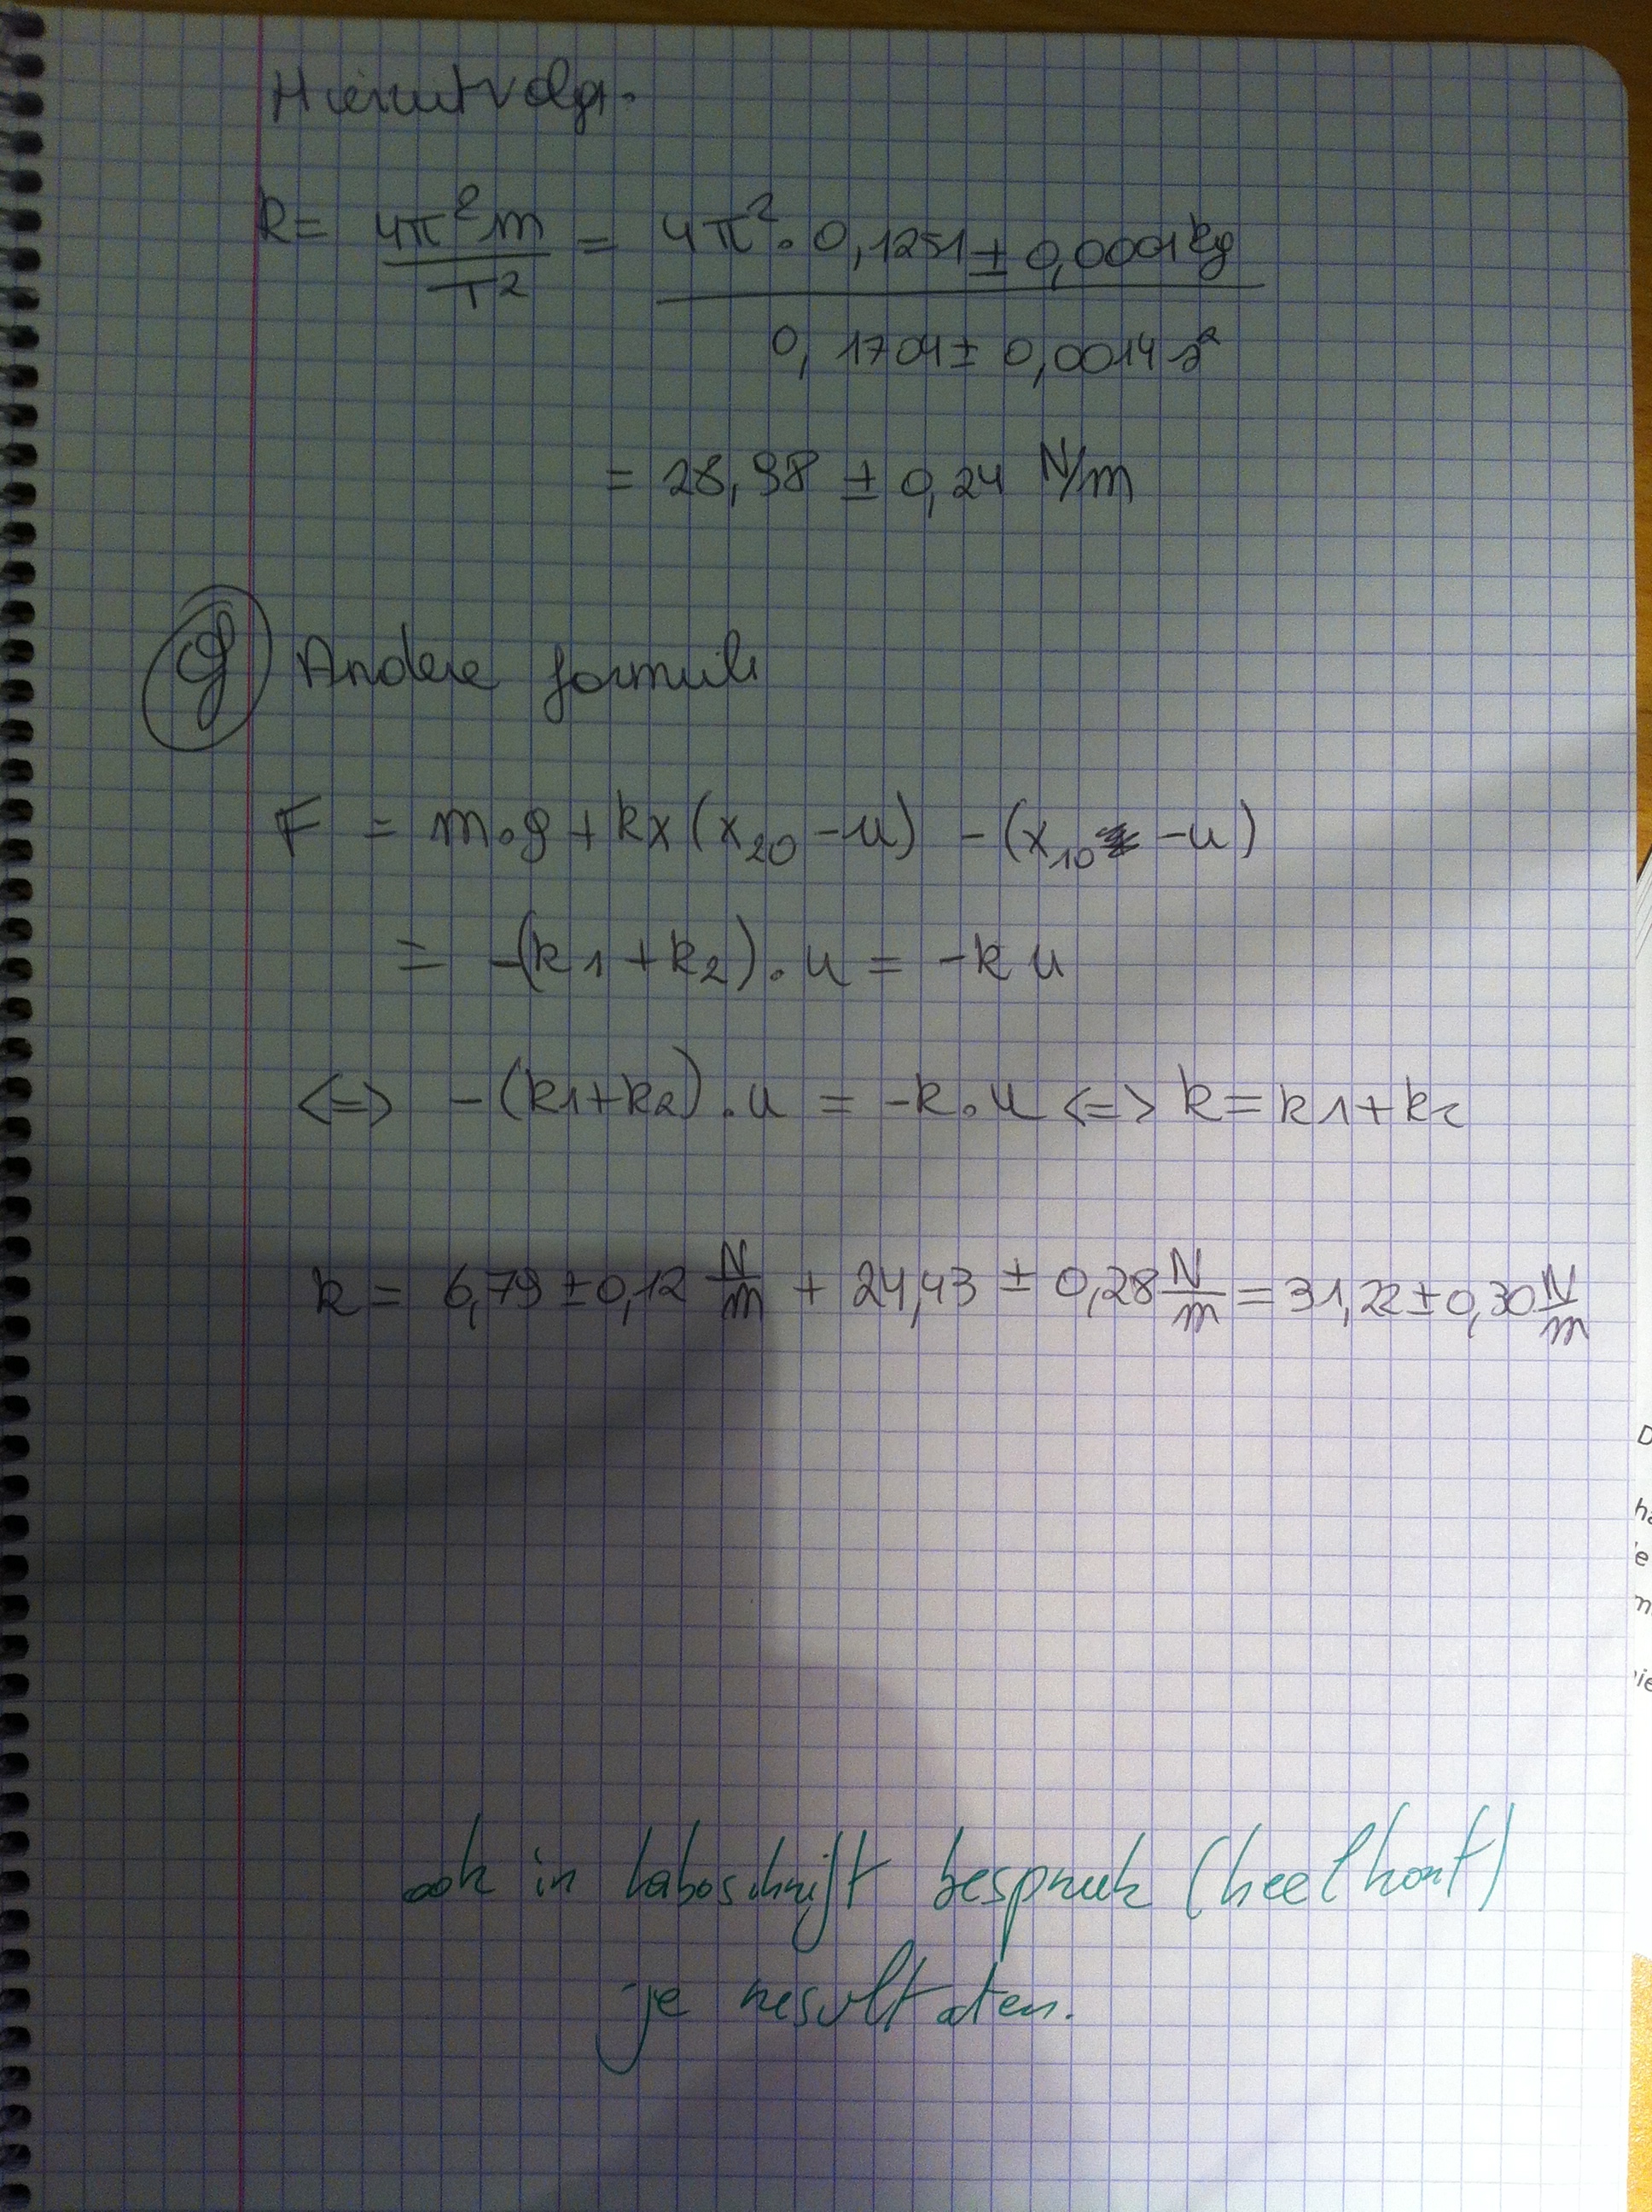 Hieruit volgt.
k = 4π²m / T² = 4π² · 0,1251 ± 0,0001 kg / 0,1704 ± 0,0014 s²
= 28,98 ± 0,24 N/m
g Andere formule
F = m·g + kx (x₂₀ - u) - (x₁₀ - u)
= -(k1 + k2) · u = -k u
<=> -(k1+k2) . u = -k · u <=> k = k1 + k2
k = 6,79 ± 0,12 N/m + 24,43 ± 0,28 N/m = 31,22 ± 0,30 N/m
ook in laboschrift bespreek (heel kort)
je resultaten.
D
ha
e
m
ie